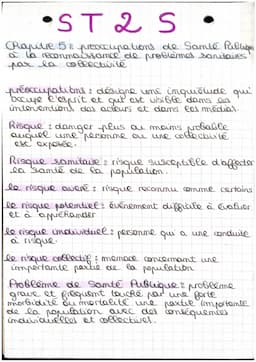 • ST2S •
Chapitre 5 : préoccupations de Santé Publique
à la reconnaissance de problèmes sanitaires
par la collectivité
préoccupations : désigne une inquiétude qui
occupe l'esprit et qui est visible dans les
interventions des acteurs et dans les médias.
Risque : danger plus ou moins probable
auquel une personne ou une collectivité
est exposée.
Risque sanitaire : risque susceptible d'affecter
la santé de la population.
le risque avéré : risque reconnu comme certains
le risque potentiel : événement difficile à évaluer
et à appréhender
le risque individuel : personne qui a une conduite
à risque.
le risque collectif : menace concernant une
importante partie de la population
Problème de Santé Publique : problème
grave et fréquent touché par une forte
morbidité ou mortalité une partie importante
de la population avec des conséquences
individuelles et collectives.